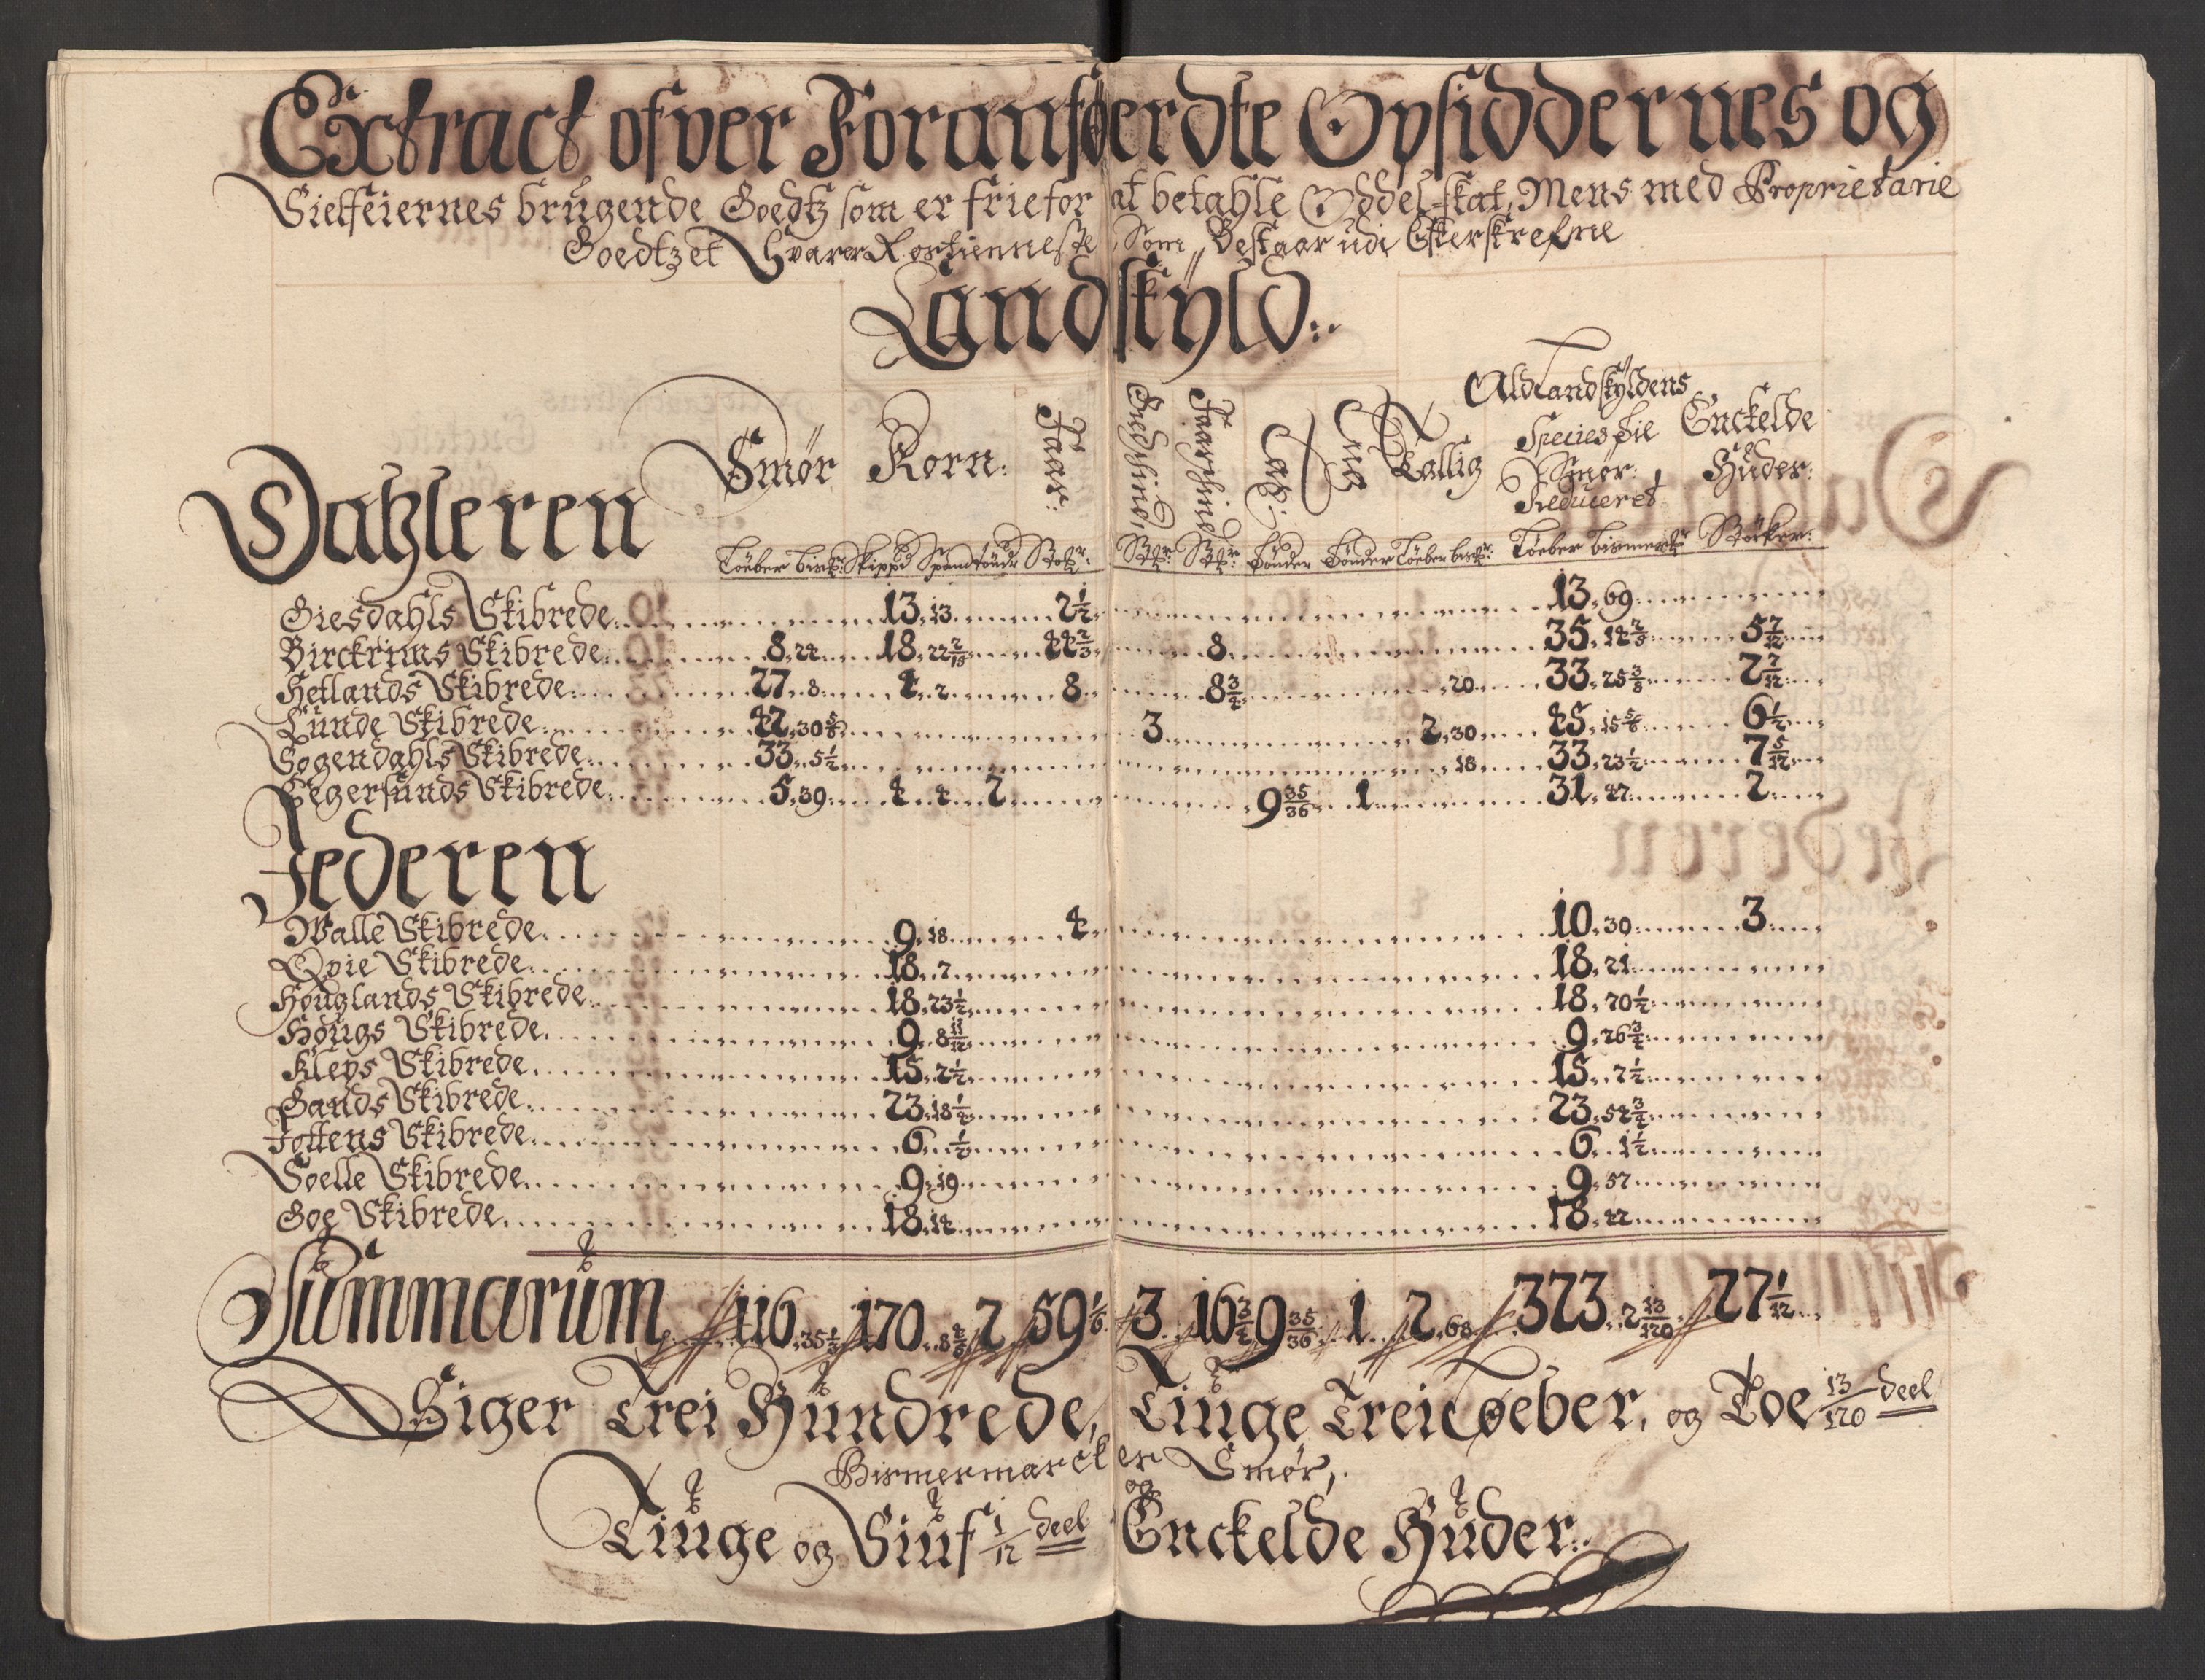 Extract ofver Foranførdte Opsiddernes og
Sielfeiernes brugende Goedtz som er frie for at betahle Oddel-skat, Mens med Proprietarie
Goedtzet Svarer Rostienneste, Som Bestaar udi Efterskrefne
Landskÿld:
Dahleren
Smør Korn: Faar: Giedschind, Faarschind Salt: Tallig
Ald Landskÿldens Species til Smør: Reduceret
Enckelde Huder:
Løeber bismk: Skippd Spand tøndr Støkr: Støkr: Støkr: Tønder Tønder Løeber bismk: Løeber bismerkr Støcker:
Giesdahls Skibrede 13, 13 2½ 13, 69
Birckrims Skibrede 8, 24 18, 22 2/15 44 2/3 8 35, 14 2/5 5 7/12
Hetlands Skibrede 27, 8 4, 2 8 8 3/4 20 33, 25 3/8 2 7/12
Lunde Skibrede 42, 30 5/6 3 2, 30 45, 15 5/6 6½
Sogendahls Skibrede 33, 5½ 18 33, 23½ 7 5/12
Eegersunds Skibrede 5, 39 4, 4 2 9 35/36 1 31, 47 2
Jederen
Walle Skibrede 9, 18 4 10, 30 3
Qvie Skibrede 18, 7 18, 21
Houglands Skibrede 18, 23½ 18, 70½
Hougs Skibrede 9, 8 11/12 9, 26 3/4
Kleps Skibrede 15, 2½ 15, 7½
Gands Skibrede 23, 18¼ 23, 54 3/4
Jottens Skibrede 6, ½ 6, 1½
Soelle Skibrede 9, 19 9, 57
Goe Skibrede 18, 14 18, 42
Summarum 116, 35 1/3 170, 8 4/5 2 59 1/6 3 16 3/4 9 35/36 1 2, 68 323, 2 13/120 27 1/12
Siger Trei Hundrede, Tiuge Trei Løeber, og Toe 13/120 deel
Bismermarcker Smør,
og
Tiuge og Siuf 1/12 deel Enckelde Huder: